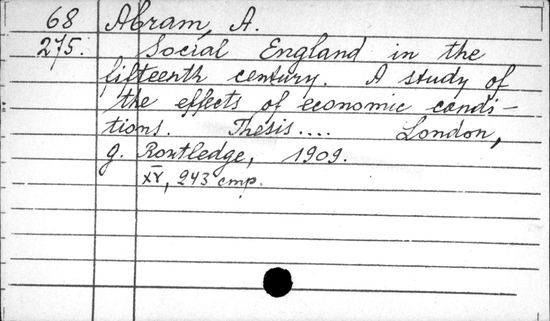 68 Abram, A.
275. Social England in the
fifteenth century. A study of
the effects of economic condi-
tions. Thesis.... London,
g. Routledge, 1909.
XV, 243 cmp.